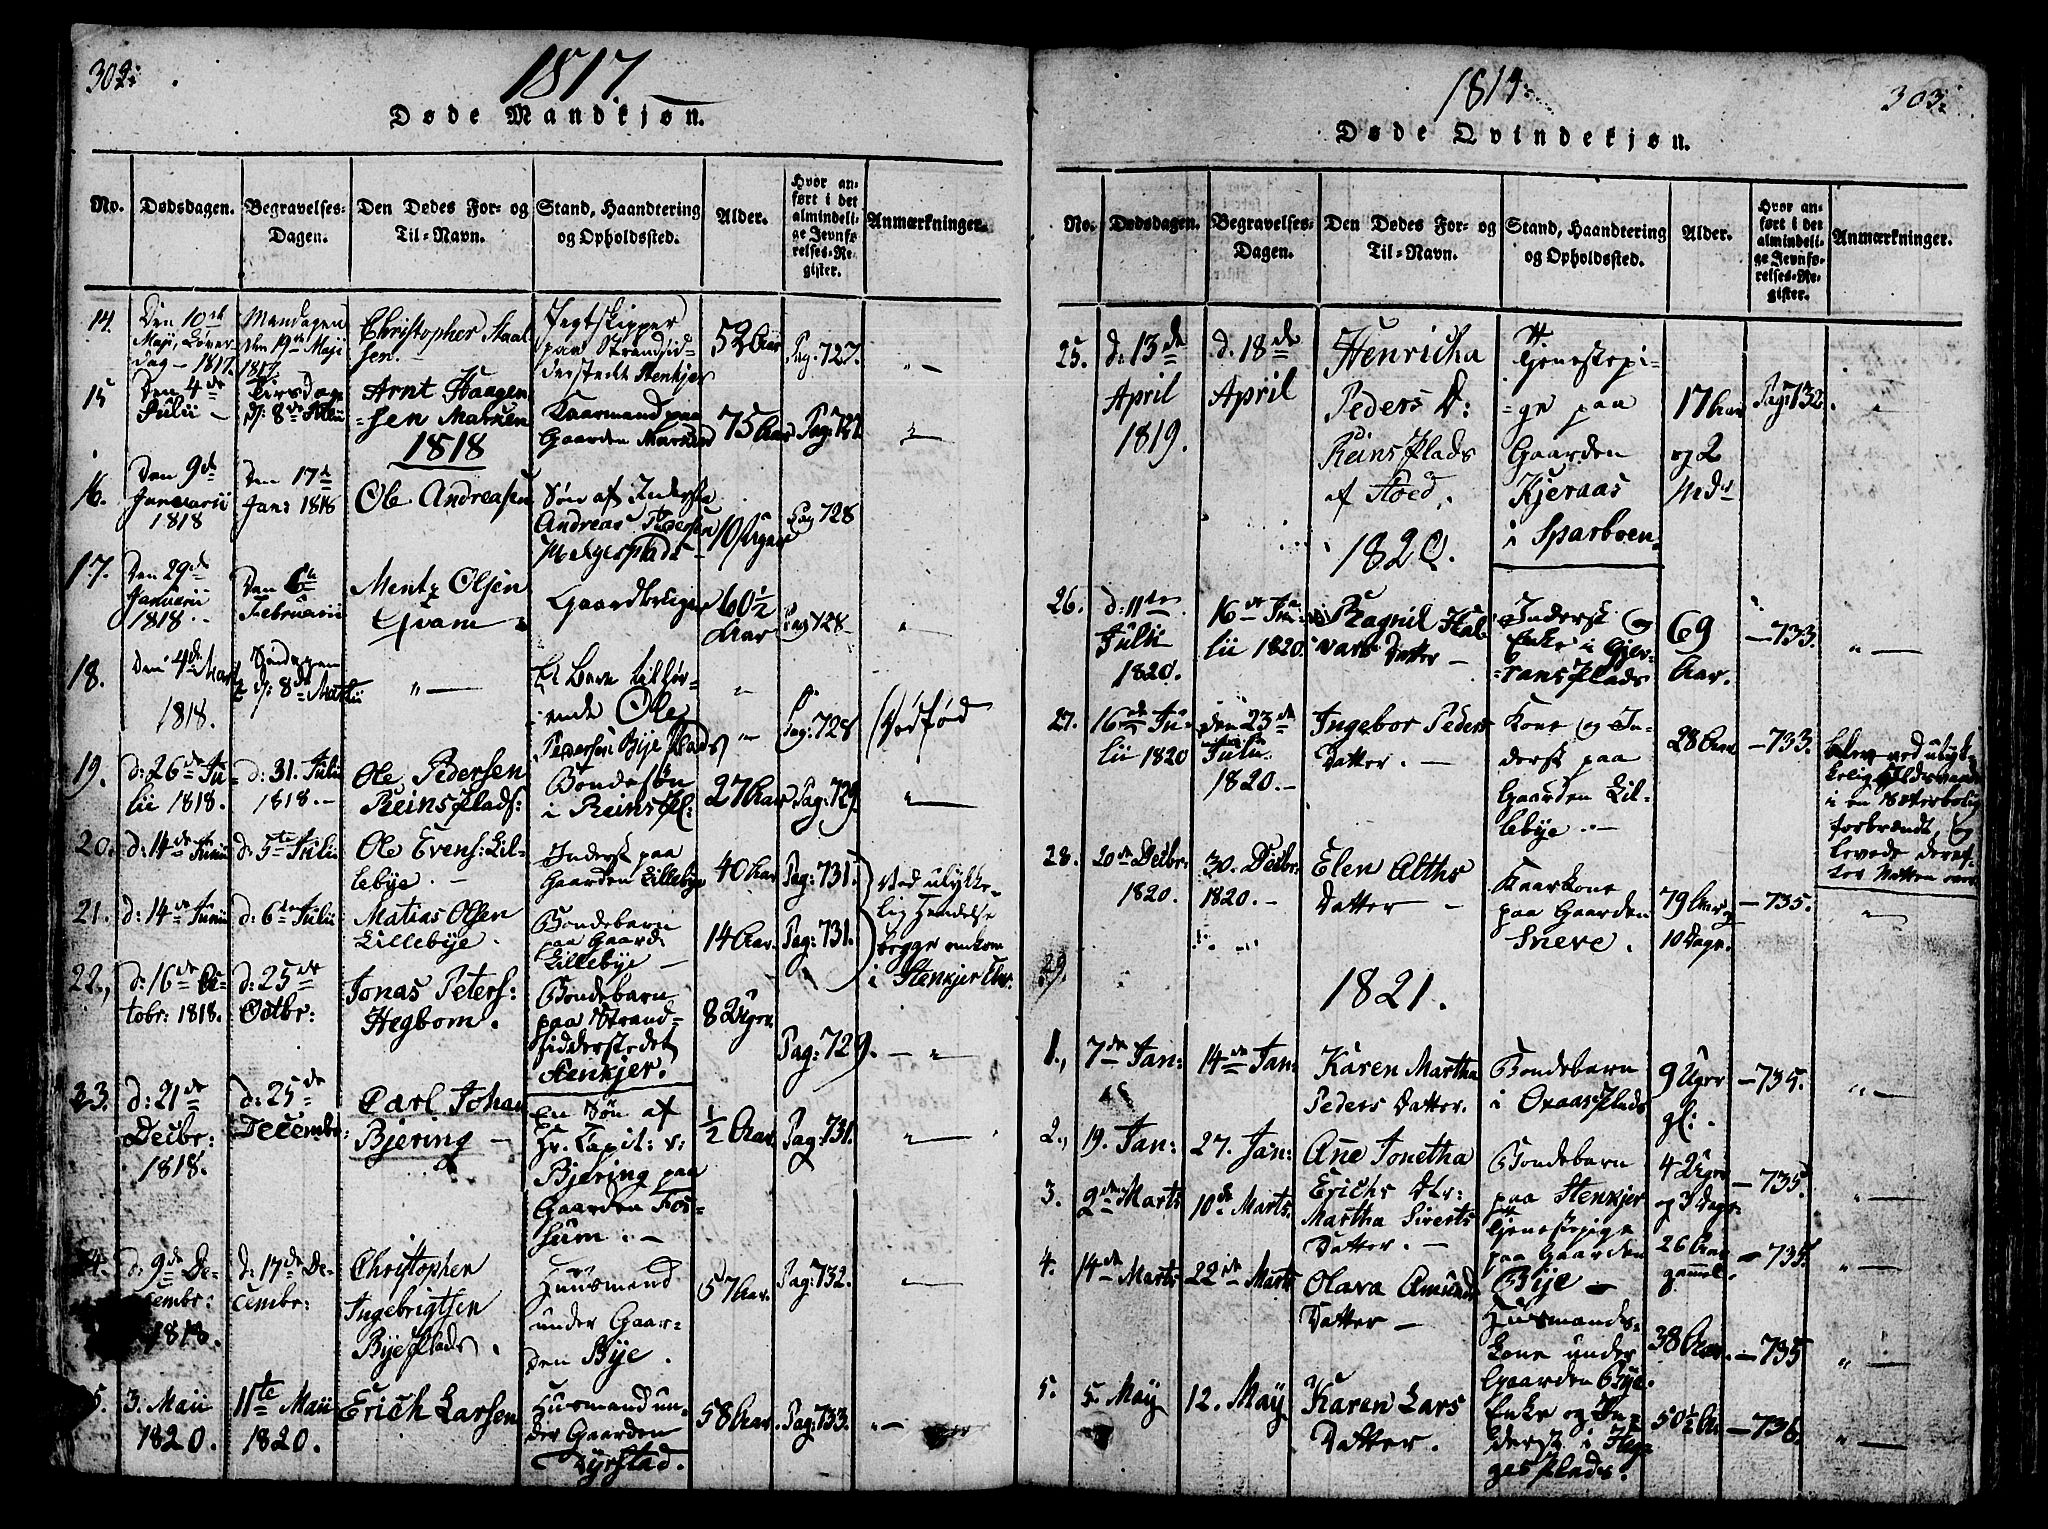 302.
1817
Døde Mandkjøn.
No.
Dødsdagen.
Begravelses-
Dagen.
Den Dødes For- og
Til-Navn.
Stand, Haandtering
og Opholdssted.
Alder.
Hvor an-
ført i det
almindeli-
ge Jevnfø-
relses-Re-
gister.
Anmærkninger.
14.
Den 10de
Maji, Løver-
dag - 1817.
Mandagen
den 19de Maji
1817.
Christopher Staal
sen.
Jegtskipper
paa Strandsid-
derstedt Stenkjer
53 Aar
Pag: 727.
" —
15
Den 4de
Julii —
Tirsdag
d: 8de Julii
Arnt Haagen
-sen Marken
Kaarmand paa
Gaarden Marken
75 Aar
Pag: 727.
" —
1818
16.
Den 9de
Januarii
1818
Den 17de
Jan: 1818
Ole Andreasen
Søn af Inderst
Andreas Pedersen
Helgesplads —
10 Uger
Pag 728
17.
Den 29de
Januarii
1818.
Den 6te
Februarii
Mentz Olsen
Qvam "
Gaardbruger
60 ½
Aar
Pag 728
"
18.
Den 4de Mar-
1818.
Søndagen
d: 8de Martii
" —
Et Barn tilhør-
ende Ole
Pedersen Bye Plads
"
Pag: 728
Dødfød
19.
d: 26de Ju-
lii 1818.
d: 31. Julii
1818. —
Ole Pedersen
Reins Plads:
Bondesøn
i Reins Pl:
27 Aar
Pag: 729.
" —
20.
d: 14de Junii
d: 5te Julii
Ole Evens: Lil-
lebye. —
Inderst paa
Gaarden Lillebye
40 Aar
Pag: 731.
Ved ulykke-
lig Hændelse
begge omkom
i Stenkjer Elv.
21.
d: 14de Junii
d: 6te Julii
Matias Olsen
Lillebye.
Bondebarn
paa Gaard
Lillebye —
14 Aar.
Pag: 731.
22.,
d: 16de Oc-
tobr: 1818.
d: 25de
Octbr:
Jonas Peters:
Hegbom.
Bondebarn
paa Strand-
sidderstedet
Stenkjer.
8 Uger.
Pag: 729.
— " —
23.
d: 21de
Decbr:
1818.
d: 25de
Decembr:
Carl Johan
Bjering —
En Søn af
Hr. Capit: v:
Bjering paa
Gaarden Fos-
sum. —
½ Aar.
Pag: 731.
" —
24.
d: 9de De-
cembr:
1818.
d: 17de De-
cembr:
Christophen
Ingebrigtsen
Bye Plads.
Huusmand
under Gaar-
den Bye.
57 Aar.
Pag: 732.
" —
5.
3. Maii
1820.
11te Maii
1820.
Erich Larsen
Husmand un-
der Gaarden
Dyrstad.
58 Aar.
Pag: 733.
" —
303.
1819.
Døde Qvindekjøn.
No.
Dødsdagen.
Begravelses-
Dagen.
Den Dødes For- og
Til-Navn.
Stand, Haandtering
og Opholdssted.
Alder.
Hvor an-
ført i det
almindeli-
ge Jevnfø-
relses-Re-
gister.
Anmærkninger.
25.
d: 13de
April
1819.
d. 18de
April
Henricha
Peders D:
Reins Plads
af Stoed.
Tjenestepi-
-ge paa
Gaarden
Kjeraas
i Sparboen.
17 Aar
og 2
Mdr
Pag: 732.
"
1820.
26.
d: 11te
Julii
1820.
16de Ju-
lii 1820.
Ragnil Hal-
vars Datter —
Inderst og
Enke i Gjer-
-rans Plads
69
Aar.
— 733.
" —
27.
16de Ju-
lii 1820
den 23de
Julii
1820. —
Ingebor Peders
Datter. —
Kone og In-
derst paa
Gaarden Lil-
lebye. —
28 Aar
— 733.
blev ved ulyk-
kelig Ildsvaade
i en
forbrændt, og
levede deref-
ter Natten over.
28.
20de Decbr.
1820.
30. Decbr.
1820. —
Elen Alths
Datter —
Kaarkone
paa Gaarden
Sneve.
79 Aar og
10 Dage.
— 735.
" —
29.
1821.
1.,
7de Jan:
14de Jan:
Karen Martha
Peders Datter.
Bondebarn
i Oxaas Plads
9 Uger
gl:.
— 735.
" —
2.,
19. Jan:
27. Jan:
Ane Jonetha
Erichs Dtr:
Bondebarn
paa Stenkjer
4 Uger
og 3 Dage
— 735.
" —
3.
2den Marts
10de Marts.
Martha Siverts
Datter. —
Tjenestepige
paa Gaarden
Bye —
26 Aar
gammel.
— 735.
" —
4.
14de Marts
22de Marts
Olava Amunds
Datter —
Husmands-
kone under
Gaarden Bye.
38 Aar.
— 735
" —
5.
5. May
12. May
Karen Lars
Datter.
Enke og In-
derst i Hel-
ges Plads.
50½ Aar
— 736.
" —